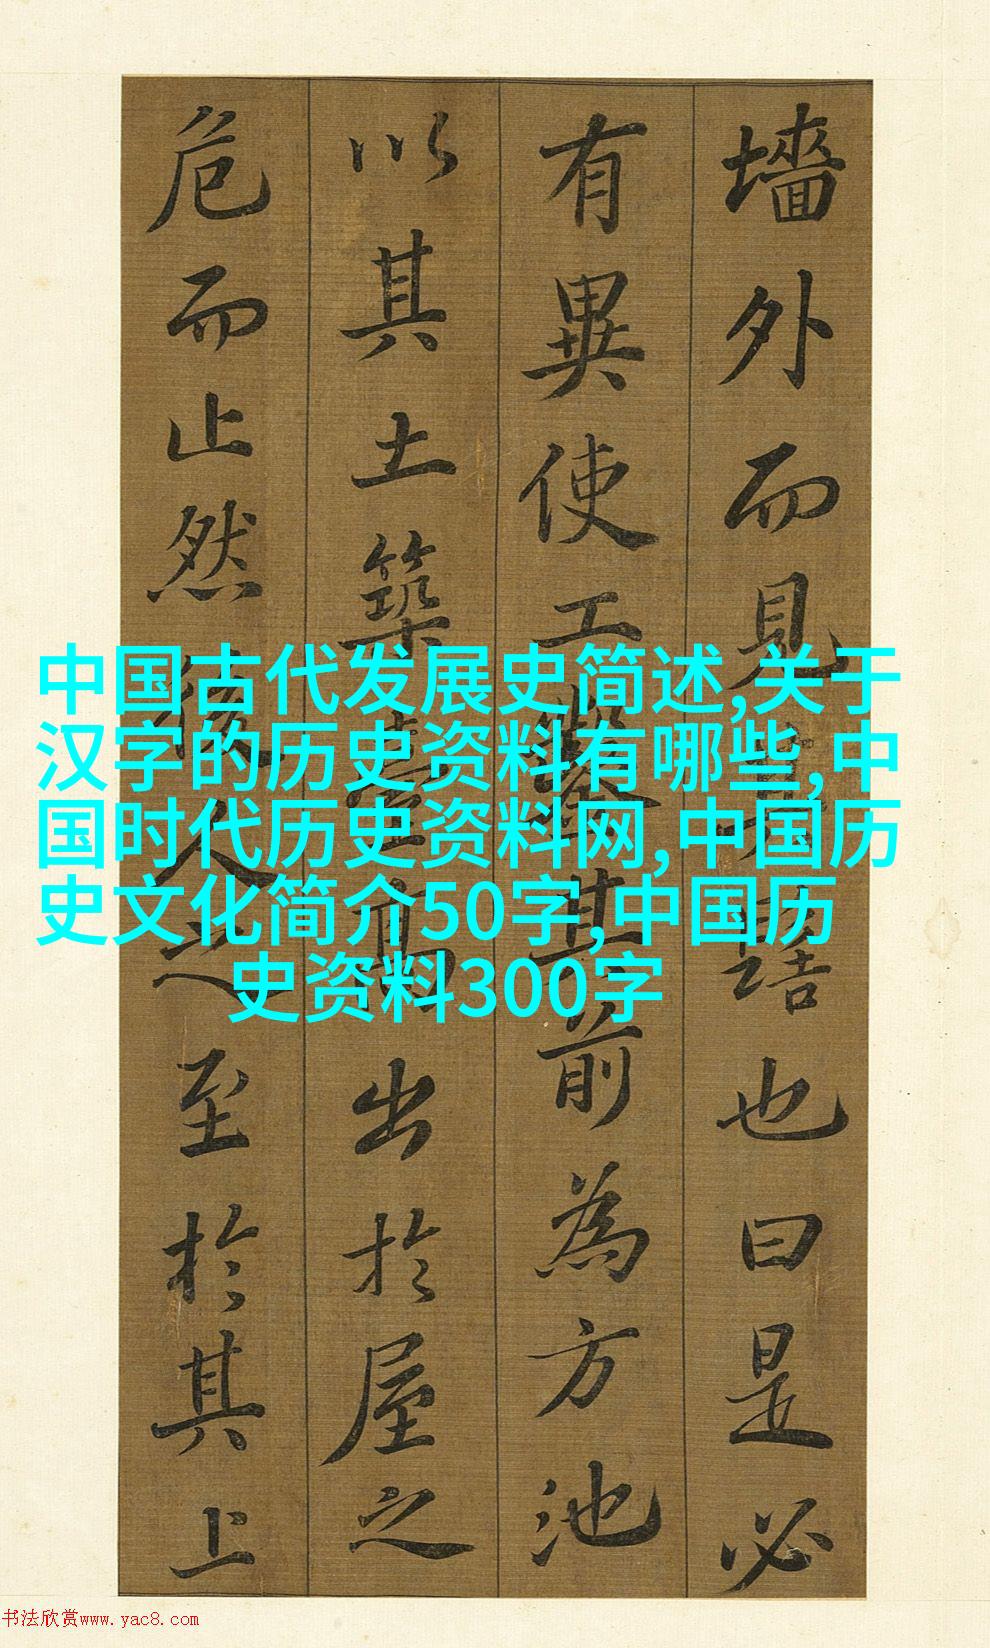 墻外而見其也曰是必
有異使工鑿其前為方池
以其土築臺高出於屋之
危而止然後人之至於其上
中国古代发展史简述,关于
汉字的历史资料有哪些,中
国时代历史资料网,中国历
史文化简介50字,中国历
史资料300字
书法欣赏www.yac8.com